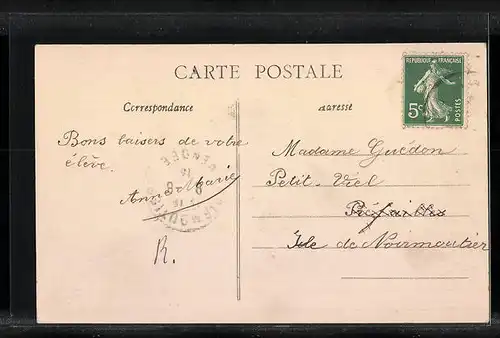 CARTE POSTALE
REPUBLIQUE FRANÇAISE
5c
POSTES
Correspondance
Adresse
Bons baisers de votre
élève.
Anne Marie
R.
VENDEE
Madame Guédon
Petit-Viel
Préfailles
Ile de Noirmoutier